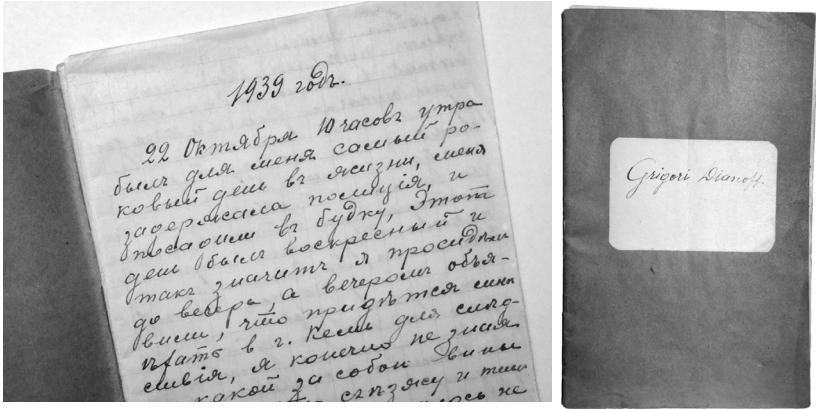 1939 годъ.
22 Октября 10 часовъ утра
былъ для меня самый ро-
ковый день въ жизни, меня
задержала полиція, и
посадили въ будку, Этотъ
день былъ воскресный и
такъ значитъ я просидѣлъ
до вечера, а вечеромъ объя-
вили, что придѣтся мнѣ
ѣхать в г. Кемь для слѣд-
ствія, я конечно не зная
какой за собой вины
и
не
Grigori Dianoff.